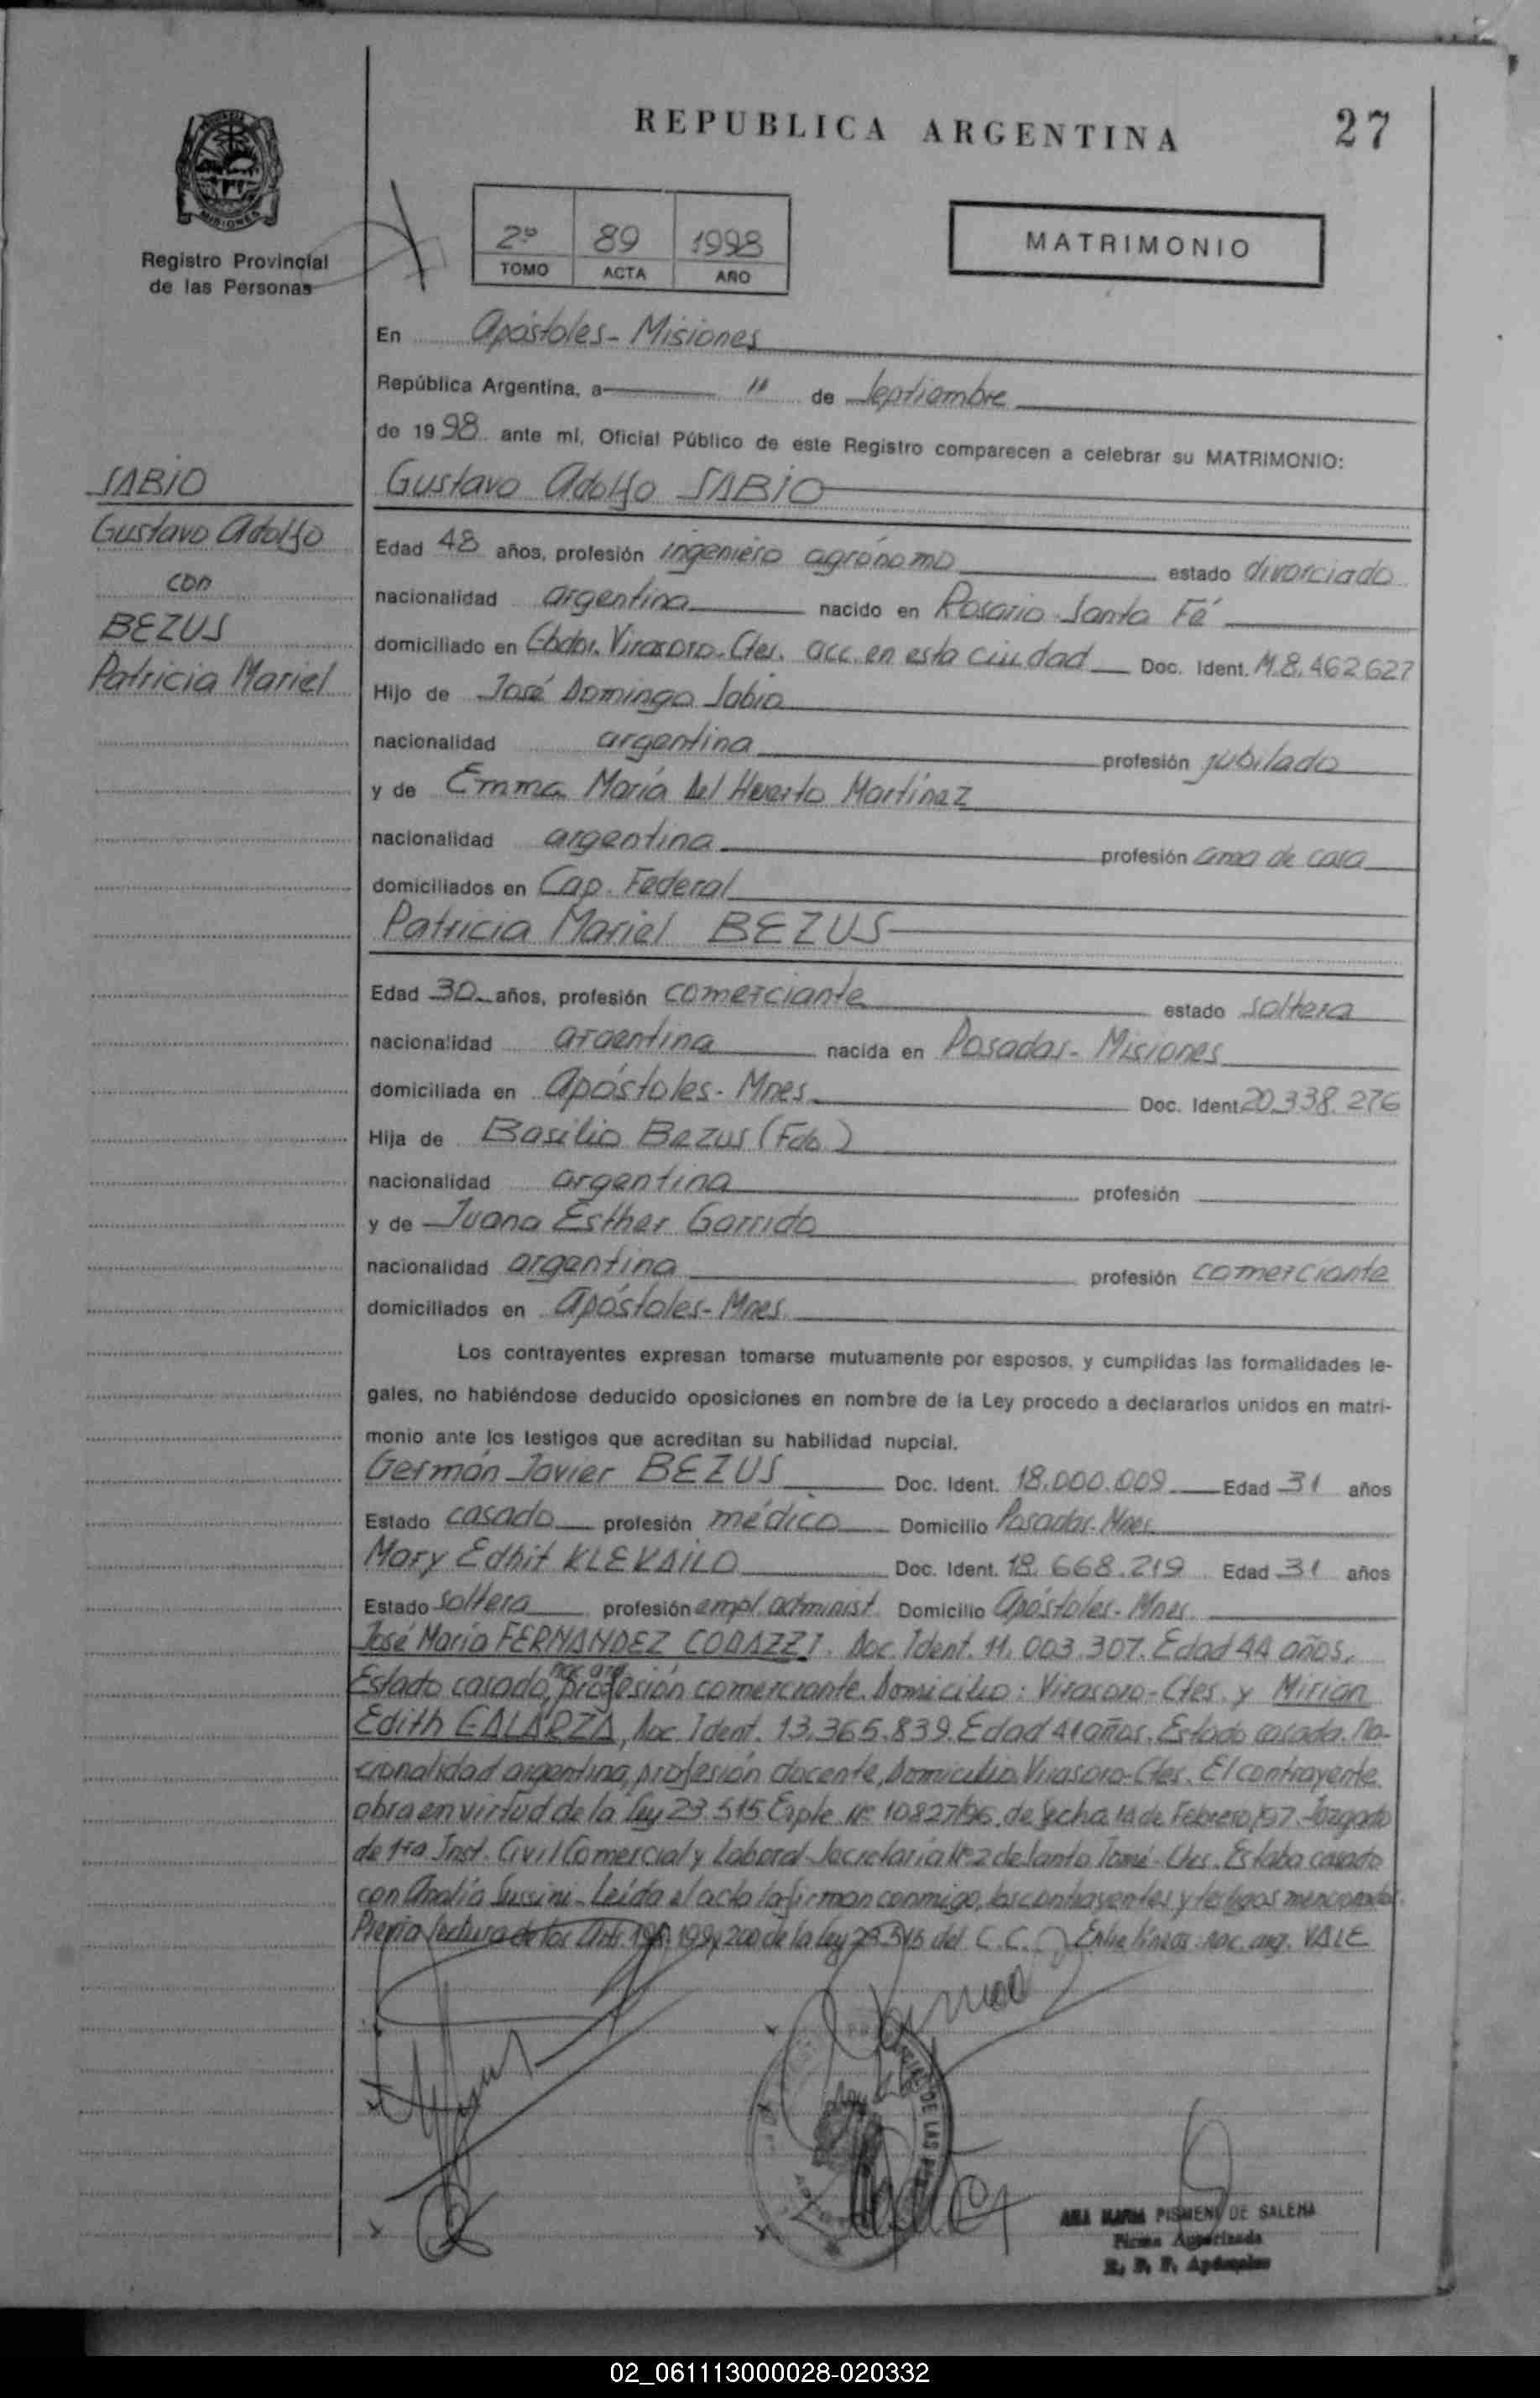 REPUBLICA ARGENTINA
27
MISIONES
Registro Provincial
de las Personas
2º 89 1998
TOMO ACTA AÑO
MATRIMONIO
En Apóstoles - Misiones
República Argentina, a 11 de Septiembre
de 1998 ante mí, Oficial Público de este Registro comparecen a celebrar su MATRIMONIO:
SABIO
Gustavo Adolfo
con
BEZUS
Patricia Mariel
Gustavo Adolfo SABIO
Edad 48 años, profesión ingeniero agrónomo estado divorciado
nacionalidad argentina nacido en Rosario - Santa Fé
domiciliado en Gbdor. Virasoro - Ctes. acc. en esta ciudad Doc. Ident. M.8.462627
Hijo de José Domingo Sabio
nacionalidad argentina profesión jubilado
y de Emma María Del Huerto Martínez
nacionalidad argentina profesión ama de casa
domiciliados en Cap. Federal
Patricia Mariel BEZUS
Edad 30 años, profesión comerciante estado soltera
nacionalidad argentina nacida en Posadas - Misiones
domiciliada en Apóstoles - Mnes. Doc. Ident. 20.338.276
Hija de Basilio Bezus (Fdo.)
nacionalidad argentina profesión
y de Juana Esther Garrido
nacionalidad argentina profesión comerciante
domiciliados en Apóstoles - Mnes.
Los contrayentes expresan tomarse mutuamente por esposos, y cumplidas las formalidades le-
gales, no habiéndose deducido oposiciones en nombre de la Ley procedo a declararlos unidos en matri-
monio ante los testigos que acreditan su habilidad nupcial.
Germán Javier BEZUS Doc. Ident. 18.000.009 Edad 31 años
Estado casado profesión médico Domicilio Posadas - Mnes.
Mary Edhit KLEKAILO Doc. Ident. 18.668.219 Edad 31 años
Estado soltera profesión empl. administ. Domicilio Apóstoles - Mnes.
José María FERNANDEZ CODAZZI. Doc. Ident. 11.003.307. Edad 44 años.
nac. arg.
Estado casado, profesión comerciante. Domicilio: Virasoro - Ctes. y Mirian
Edith GALARZA, Doc. Ident. 13.365.839. Edad 41 años. Estado casada. Na-
cionalidad argentina, profesión docente, Domicilio Virasoro - Ctes. El contrayente
obra en virtud de la ley 23.515 Expte. Nº 10827/96, de fecha 14 de Febrero/97. Juzgado
de 1ra Inst. Civil Comercial y Laboral - Secretaría Nº 2 de Santo Tomé - Ctes. Estaba casado
con Analía Sussini - Leída el acta la firman conmigo, los contrayentes y testigos mencionados.
Previa lectura de los Arts. 198, 199 y 200 de la ley 23.515 del C.C. Entre líneas: nac. arg. VALE
DE LAS
ANA MARIA PISMENI DE SALEMA
Firma Autorizada
R. P. P. Apóstoles
02_061113000028-020332